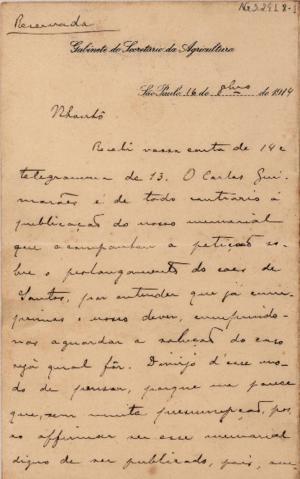 Reservada
Gabinete do Secretario da Agricultura
São Paulo, 16 de 9bro de 1914
Nhonhô
Recebi vossa carta de 14 e
telegramma de 13. O Carlos Gui-
marães é de todo contrario á
publicação do nosso memorial
que acompanhar a petição so-
bre o prolongamento do caes de
Santos, por entender que já cum-
primos o nosso dever, cumprindo-
nos aguardar a solução do caso
seja qual fôr. Divirjo d'esse mo-
do de pensar, porque me parece
que, sem muita presumpção, pos-
so affirmar ser esse memorial
digno de ser publicado, pois,